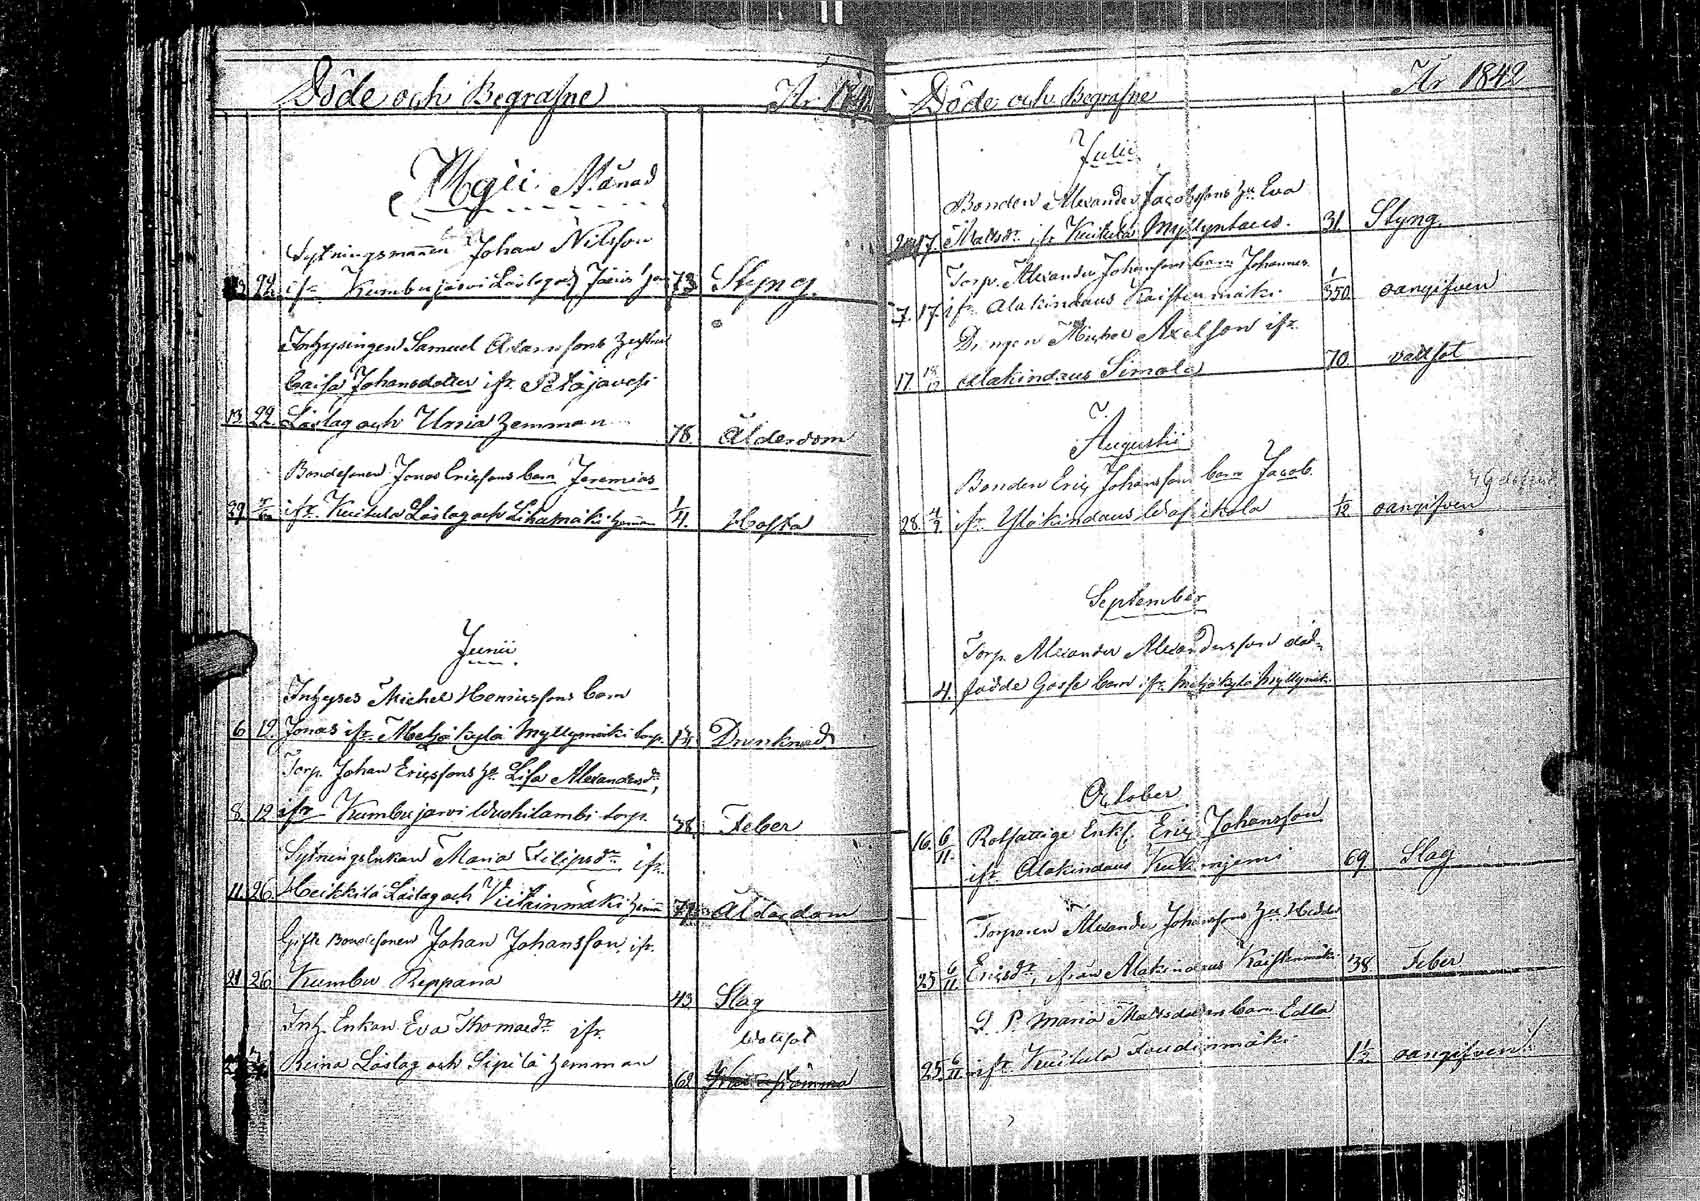 Döde och Begrafne År 1842
Maji Månad
Sytningsmannen Johan Nilsson
13 22 ifr Kumbujärvi Låslag och Jaeris 73 Styng.
Inhysingen Samuel Adamssons hustru
Caisa Johansdotter ifr. Petäjävesi
13. 22. Låslag och Unia hemman 78. Ålderdom
Bondesonen Jonas Ericssons barn Jeremias
29 ifr. Kuitula Låslag och Lihamäki hemman 1/4. Hosta
Junii
Inhyses Michel Henricssons barn
6 12. Jonas ifr. Metzäkylä Myllymäki torp. 13/4 Drunknad
Torp. Johan Ericssons hu Lisa Alexandersdr,
8. 12 ifr Kumbujärvi Wuohilambi torp. 38. Feber
Sytnings Enkan Maria Filipsdr. ifr.
11. 26. Heikkilä Låslag och Viitainmäki hemm 79. Ålderdom
Gifte Bondesonen Johan Johansson, ifr.
21 26 Kumbu Reppana 43. Slag
Inh. Enkan Eva Thomasdr ifr. Wattsot
Reina Låslag och Sipilä hemman 62
Döde och Begrafne År 1842
Julii
Bonden Alexander Jacobssons hu Eva
17. Mattsdr. ifr Kuitula Myllyntaus. 31. Styng.
Torp. Alexander Johanssons barn Johannes
7. 17. ifr. Alakindaus Kaistenmäki 1/350 oangifven
Drengen Michel Axelsson ifr.
17. 18/12 Alakindaus Simola 70. vattsot
Augustii
Bonden Eric Johanssons barn Jacob
28. 4/9 ifr Yläkindaus 1/12 oangifven
September
Torp. Alexander Alexandersson död-
4. födde Gosse barn ifr. Metzäkylä Myllymäki
October
16. 6/11. Rotfattige Enkl. Eric Johansson
ifr. Alakindaus 69 Slag
Torparen Alexander Johanssons hu Hedda
25 6/11 Ericsdr, ifrån Alakindaus Kaistenmäki 38 Feber
Q. P. Maria Mattsdotters barn Edla
25. 6/11 ifr. Kuitula Toudinmäki 1 1/2 oangifven.